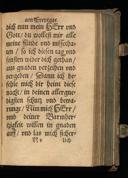 am Freytage.
dich nun mein HErr und
Gott/ du wollest mir alle
meine sünde und missetha-
ten / so ich diesen tag und
wider dich gethan/
aus gnaden verzeihen und
vergeben / Dann ich be-
fehle mich dir heint diese
nacht/ in deinen allergne-
digsten schutz und bewa-
rung/ Nim mich HErr/
und deiner Barmher-
tzigkeit willen in gnaden
auf/ und las mich sicher-
lich